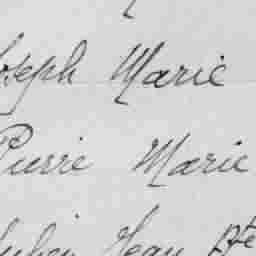 Joseph Marie
Pierre Marie
Julien Jean Bte